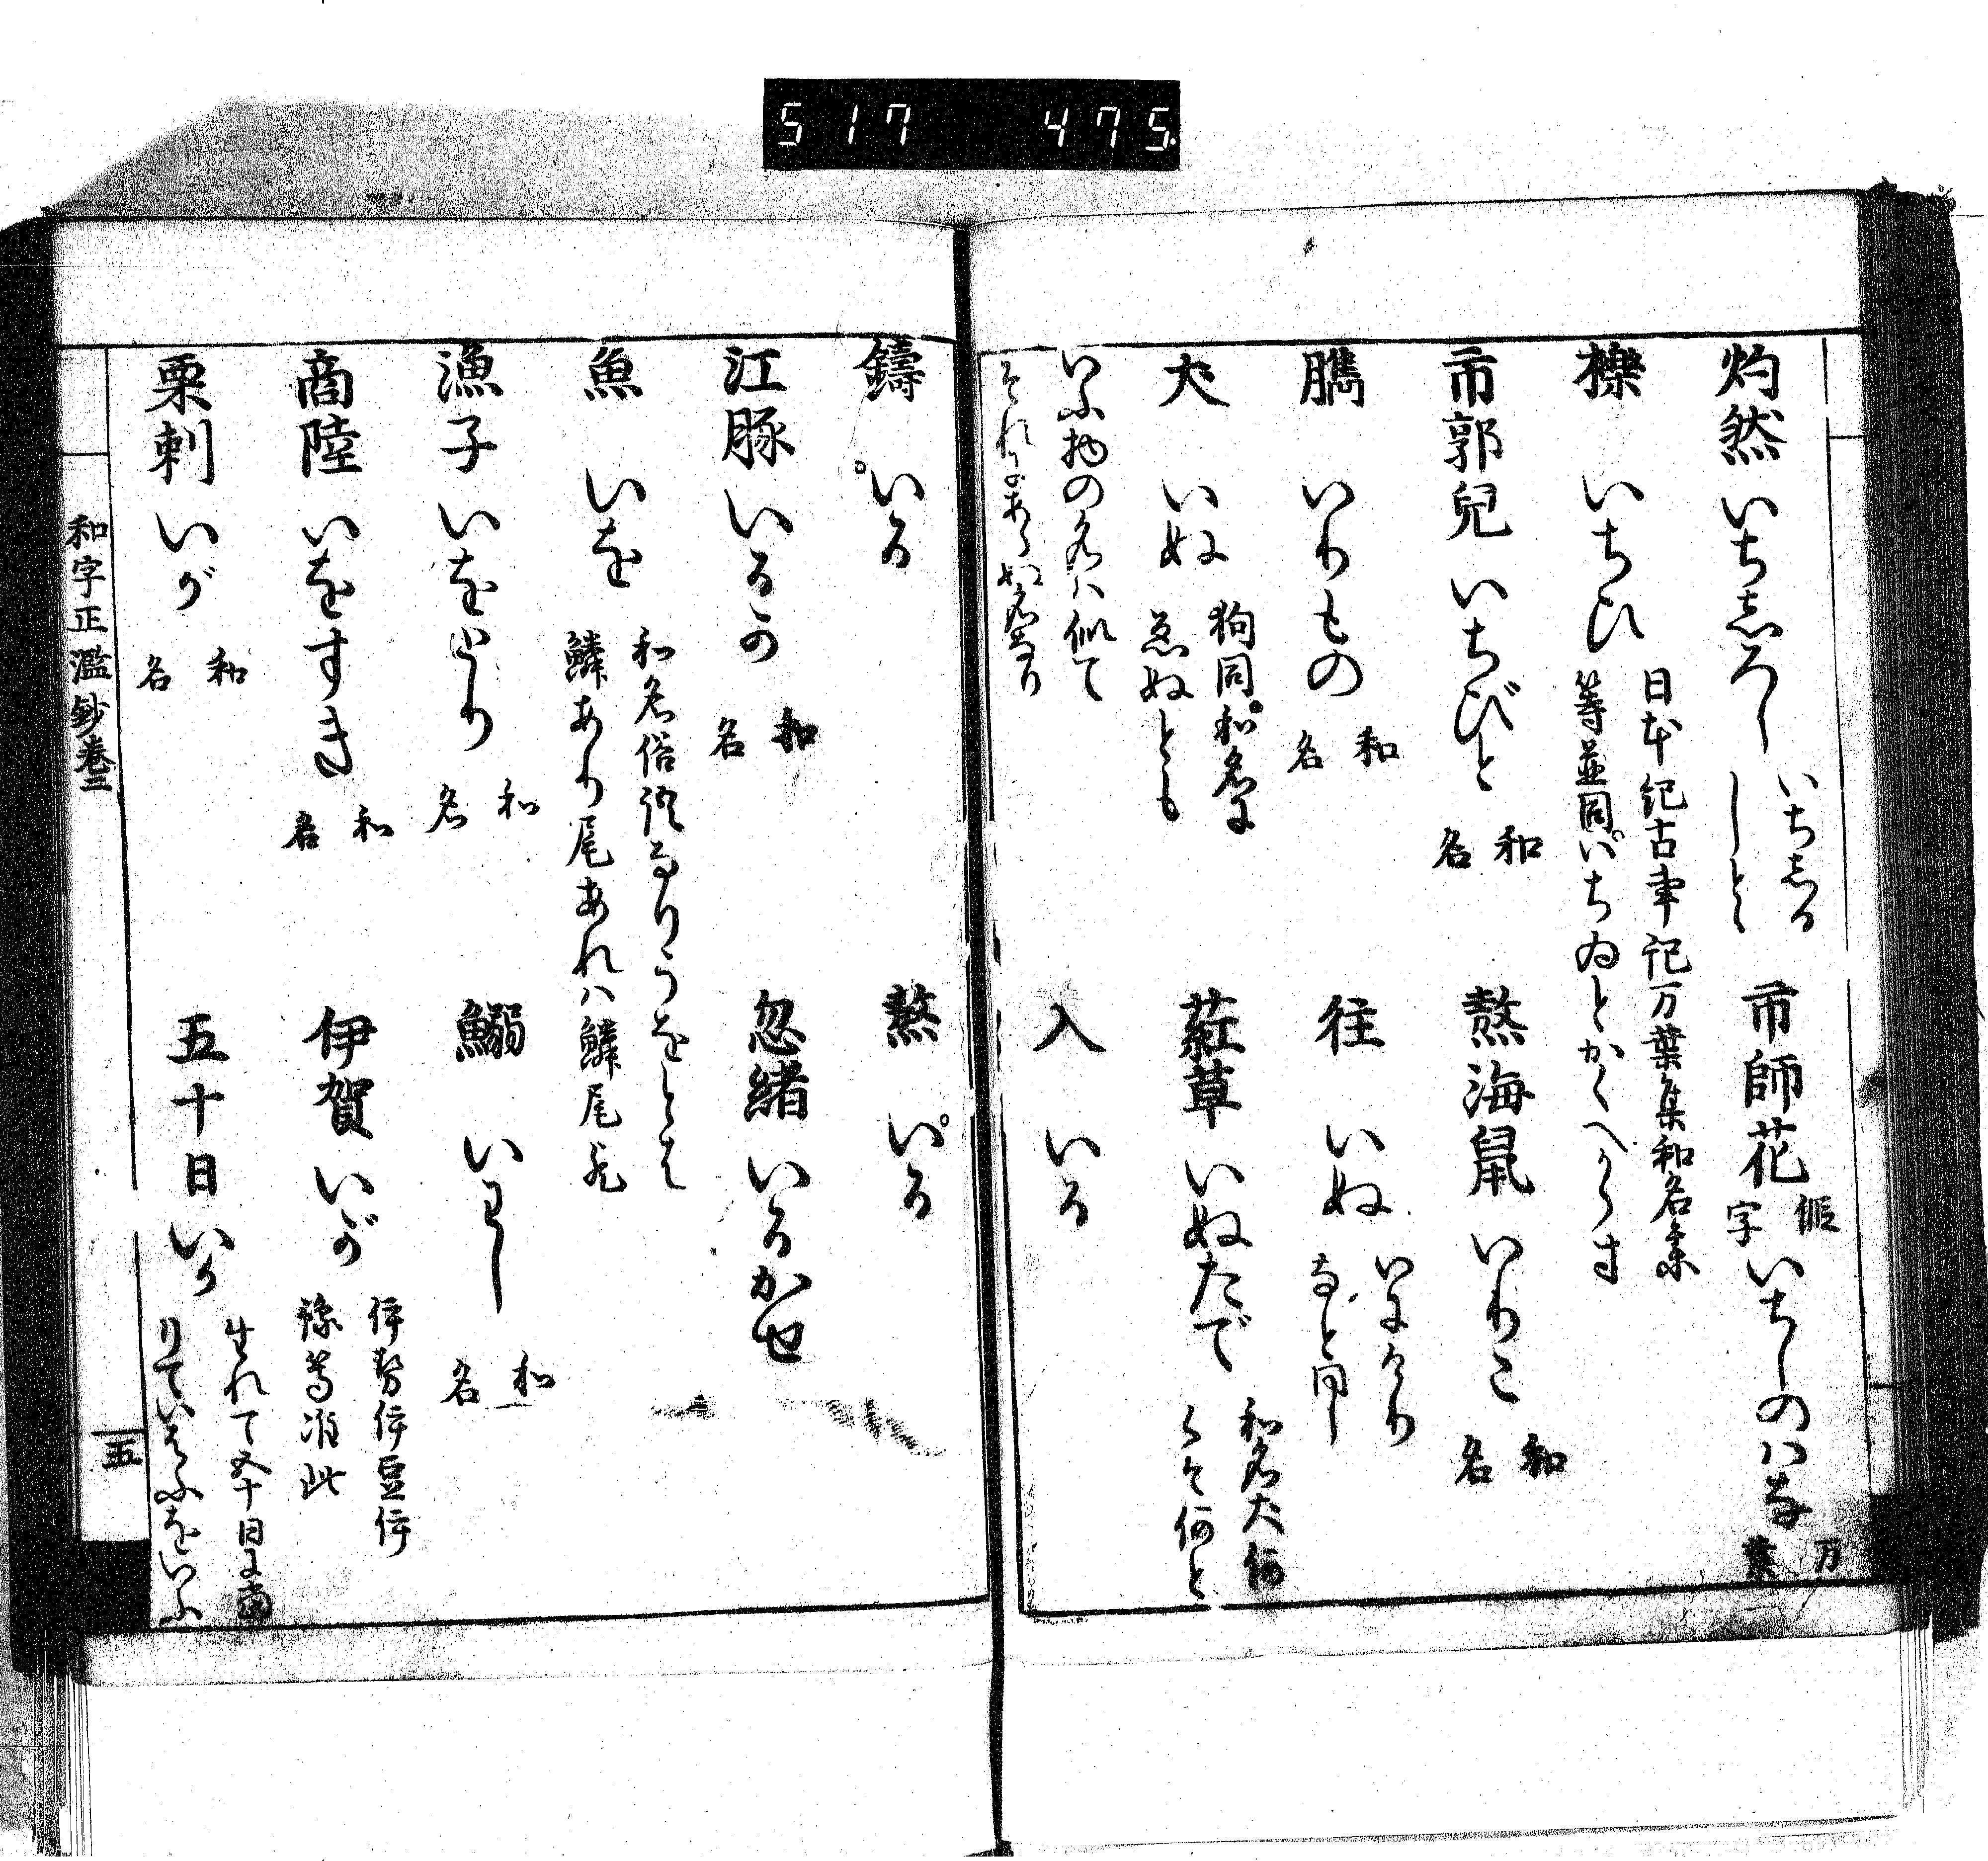 517 475
灼然 いちしろし いちしるしとも 市師花 仮字 いちしのはな 万葉
櫟 いちひ 日本紀古事記万葉集和名集
等並同いちゐとかくへからす
市郭兒 いちびと 和名 熬海鼠 いりこ 和名
臇 いりもの 和名 往 いぬ いにけり
なと同し
犬 いぬ 狗同和名に
ゑぬとも 葒草 いぬたで 和名犬何
くそ何と
いふ物の名ハ似て
それにあらぬ名なり 入 いる
鑄 いる 熬 いる
江豚 いるか 和名 忽緒 いるかせ
魚 いを 和名俗
鱗あり尾あれハ鱗尾
漁子 いをとり 和名 鰯 いわし 和名
商陸 いをすき 和名 伊賀 いが 伊勢伊豆伊
豫等准此
栗刺 いが 和名 五十日 いか 生れて五十日に當
りていはふをいふ
和字正濫鈔巻二
五